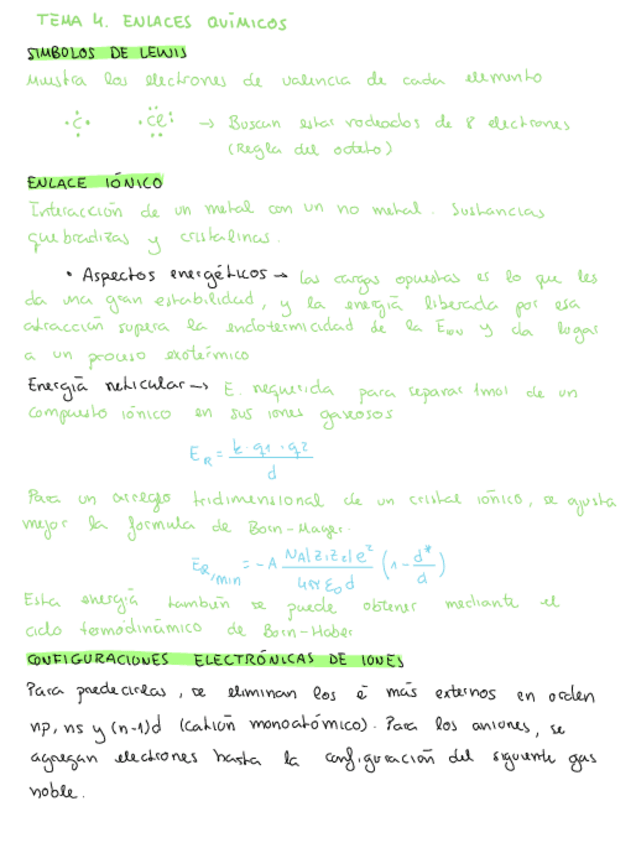 TEMA 4. ENLACES QUÍMICOS
SIMBOLOS DE LEWIS
Muestra los electrones de valencia de cada elemento
·C· ·Cl: → Buscan estar rodeados de 8 electrones
(Regla del octeto)
ENLACE IÓNICO
Interacción de un metal con un no metal. Sustancias
quebradizas y cristalinas.
• Aspectos energéticos → las cargas opuestas es lo que les
da una gran estabilidad, y la energía liberada por esa
atracción supera la endotermicidad de la Eion y da lugar
a un proceso exotérmico
Energía reticular → E. requerida para separar 1mol de un
compuesto iónico en sus iones gaseosos
E_R = k·q1·q2 / d
Para un arreglo tridimensional de un cristal iónico, se ajusta
mejor la formula de Born-Mayer.
E_R,min = -A NA|z1z2|e² / 4πε₀d (1 - d*/d)
Esta energía también se puede obtener mediante el
ciclo termodinámico de Born-Haber
CONFIGURACIONES ELECTRÓNICAS DE IONES
Para predecirlas, se eliminan los ē más externos en orden
np, ns y (n-1)d (catión monoatómico). Para los aniones, se
agregan electrones hasta la configuración del siguiente gas
noble.